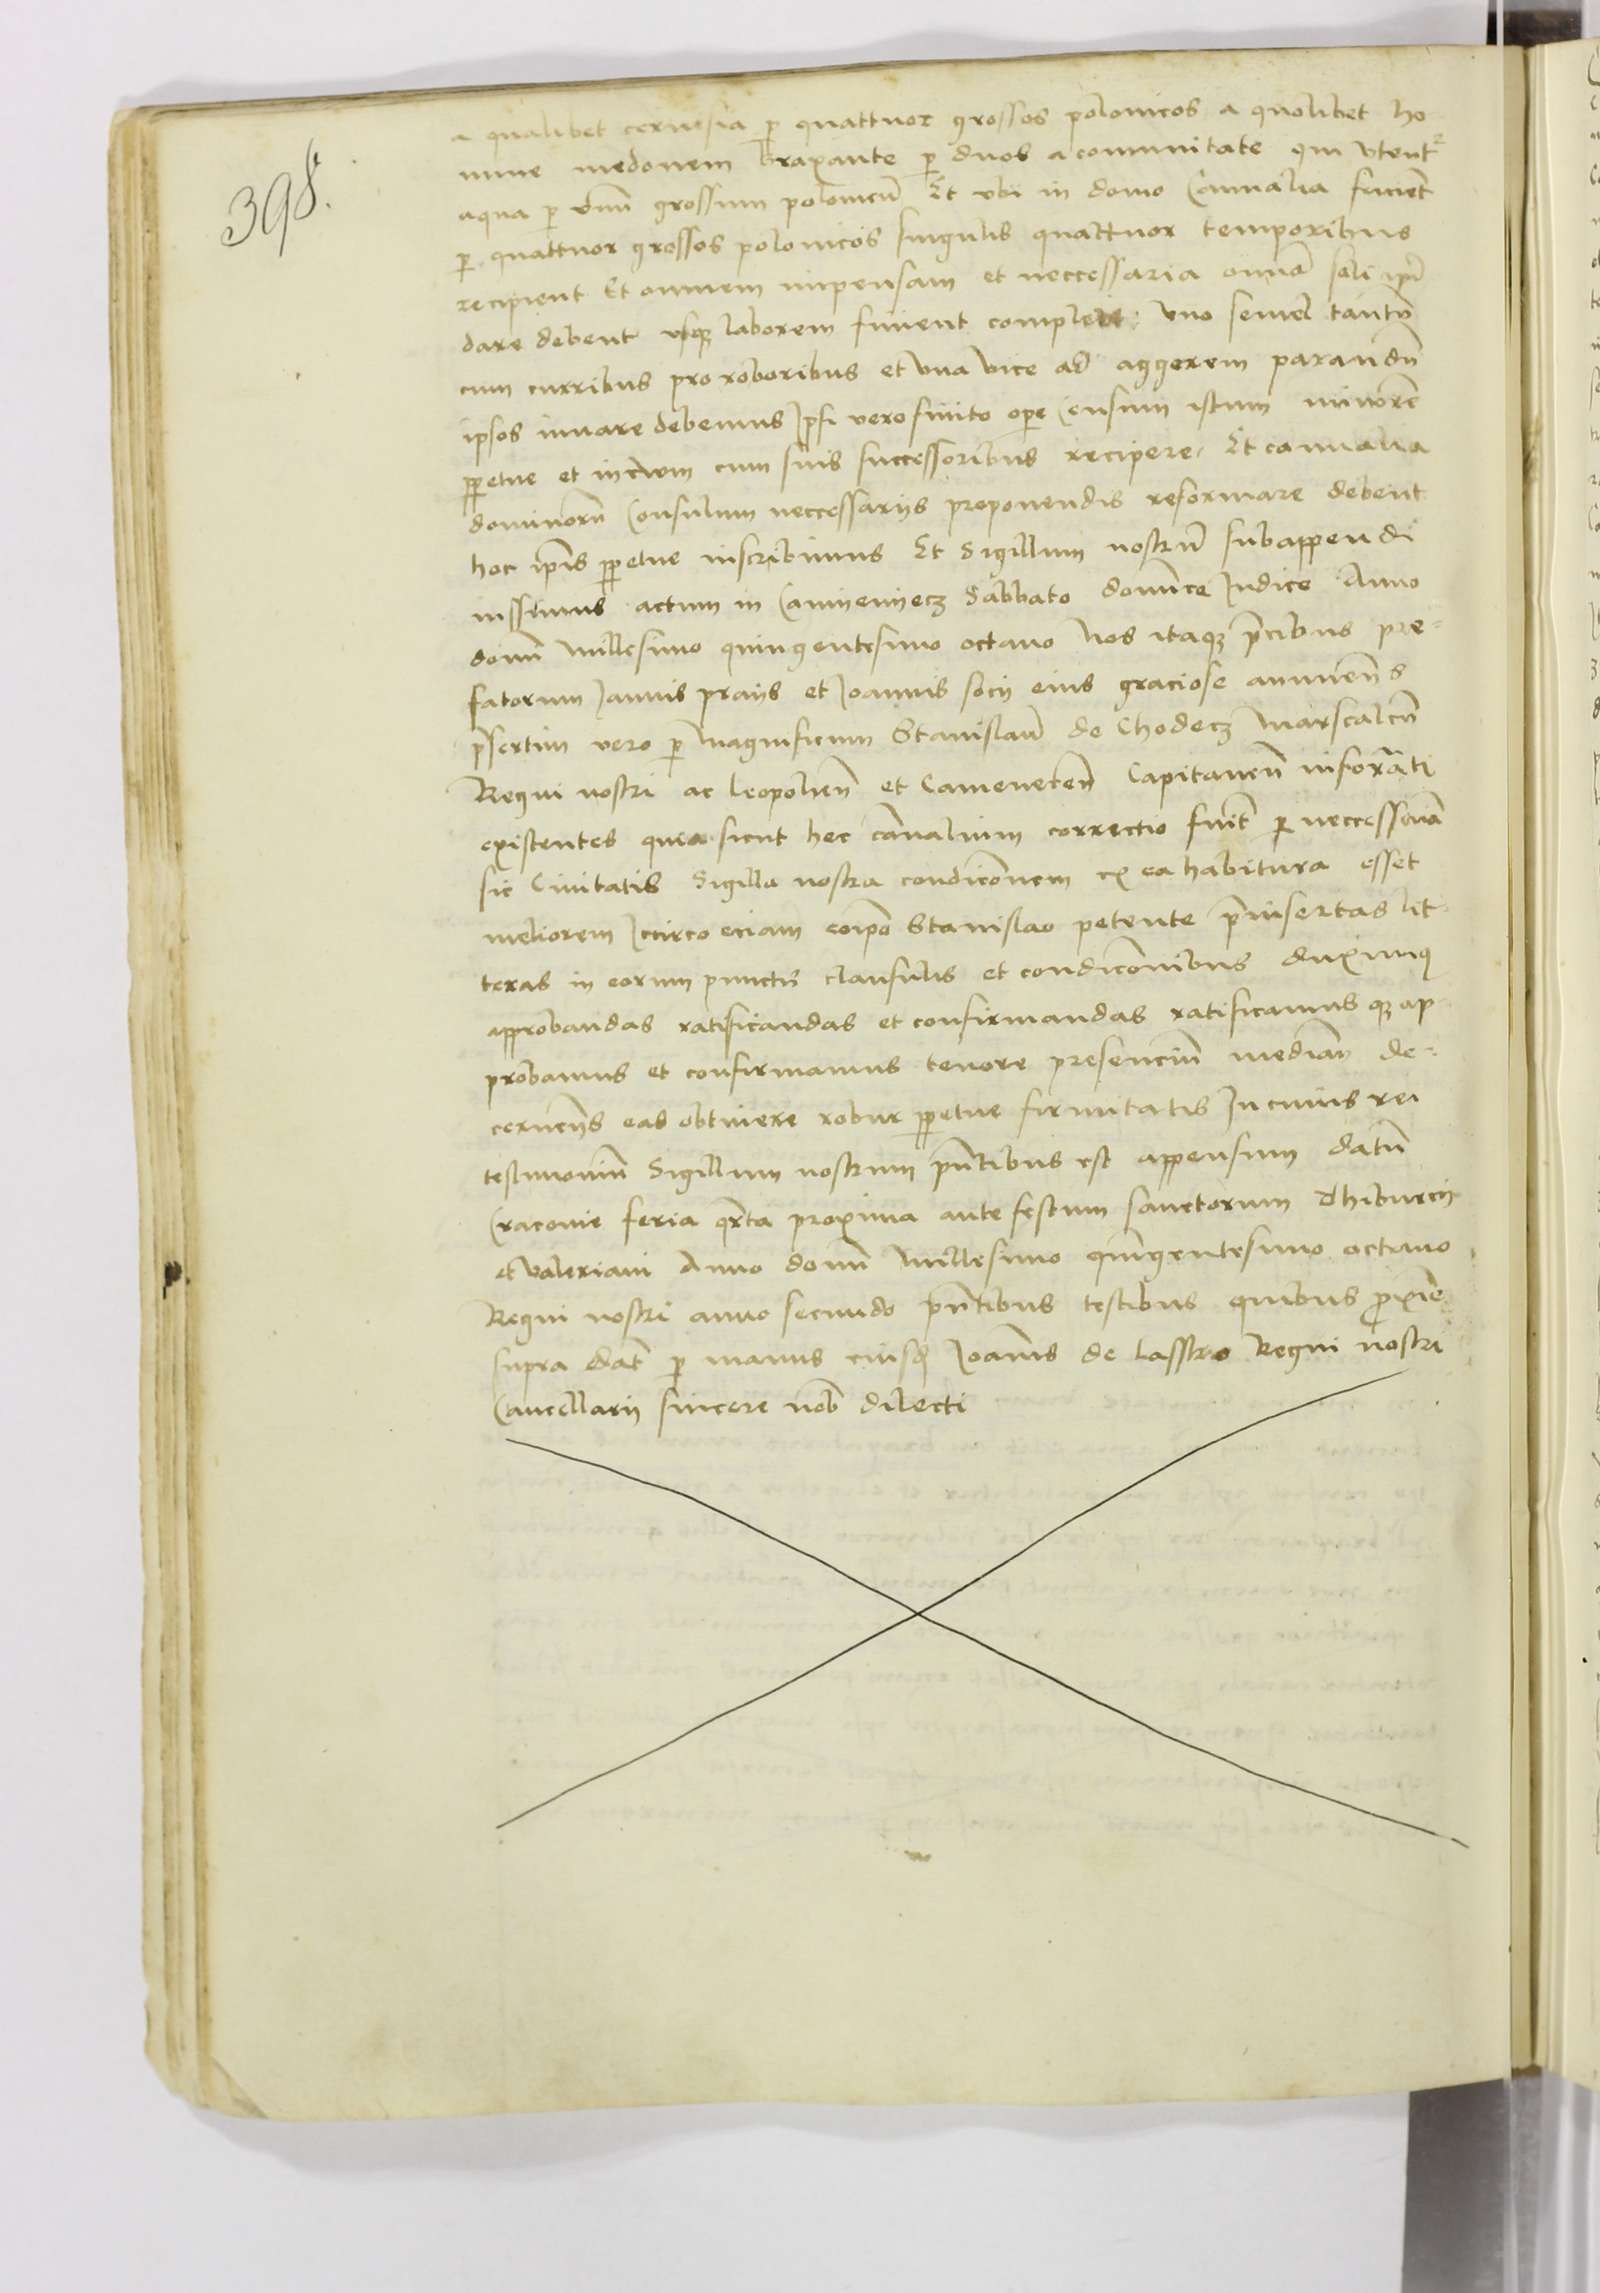 398.
a qualibet cervisia p quattuor grossos polonicos a quolibet ho
mine medonem braxante p duos a comunitate qui utent
aqua p unū grossum polonicū Et ubi in domo Cannalia fuerīt
p quattuor grossos polonicos singulis quattuor temporibus
recipient Et omnem impensam et neccessaria omnia soli ipsi
dare debent usqz laborem finient complete uno semel tantū
cum curribus pro roboribus et una vice ad aggerem parandū
ipsos iuvare debemus Ipsi vero finito ope Censum istum minorē
ppetue et in evum cum suis successoribus recipere Et cannalia
dominorū Consulum neccessarijs proponendis reformare debent
hoc ipīs ppetue inscribimus Et Sigillum nostrū subappendi
iussimus actum in Camyenyecz Sabbato domīce Iudice Anno
domī Millesimo quingentesimo octavo Nos itaqz p̄cibus pre=
fatorum Iannis praijs et Joannis socij eius graciose annuen̄s
p̄sertim vero p Magnificum Stanislaū de Chodecz Marscalcū
Regni nostri ac leopolien̄ et Camenecen̄ Capitaneū informati
existentes quia sicut hec canalium correctio fuit p neccessaria
sic Civitatis Sigilla nostra condicōnem ex ea habitura esset
meliorem Iccirco eciam eoip̄o Stanislao petente p̄insertas lit
teras in eorum punctis clausulis et condicōnibus duximus
approbandas ratificandas et confirmandas ratificamus qz ap
probamus et confirmamus tenore presenciū median̄ de=
cernen̄s eas obtinere robur ppetue firmitatis In cuius rei
testimoniū Sigillum nostrum pn̄tibus est appensum datū
Cracovie feria qrta proxima ante festum sanctorum Thiburcij
et Valeriani Anno domī Millesimo quingentesimo octavo
Regni nostri anno secundo pn̄tibus testibus quibus proxīe
supra dat p manus eiusd Joannis de lassko Regni nostri
Cancellarij sincere nob dilecti